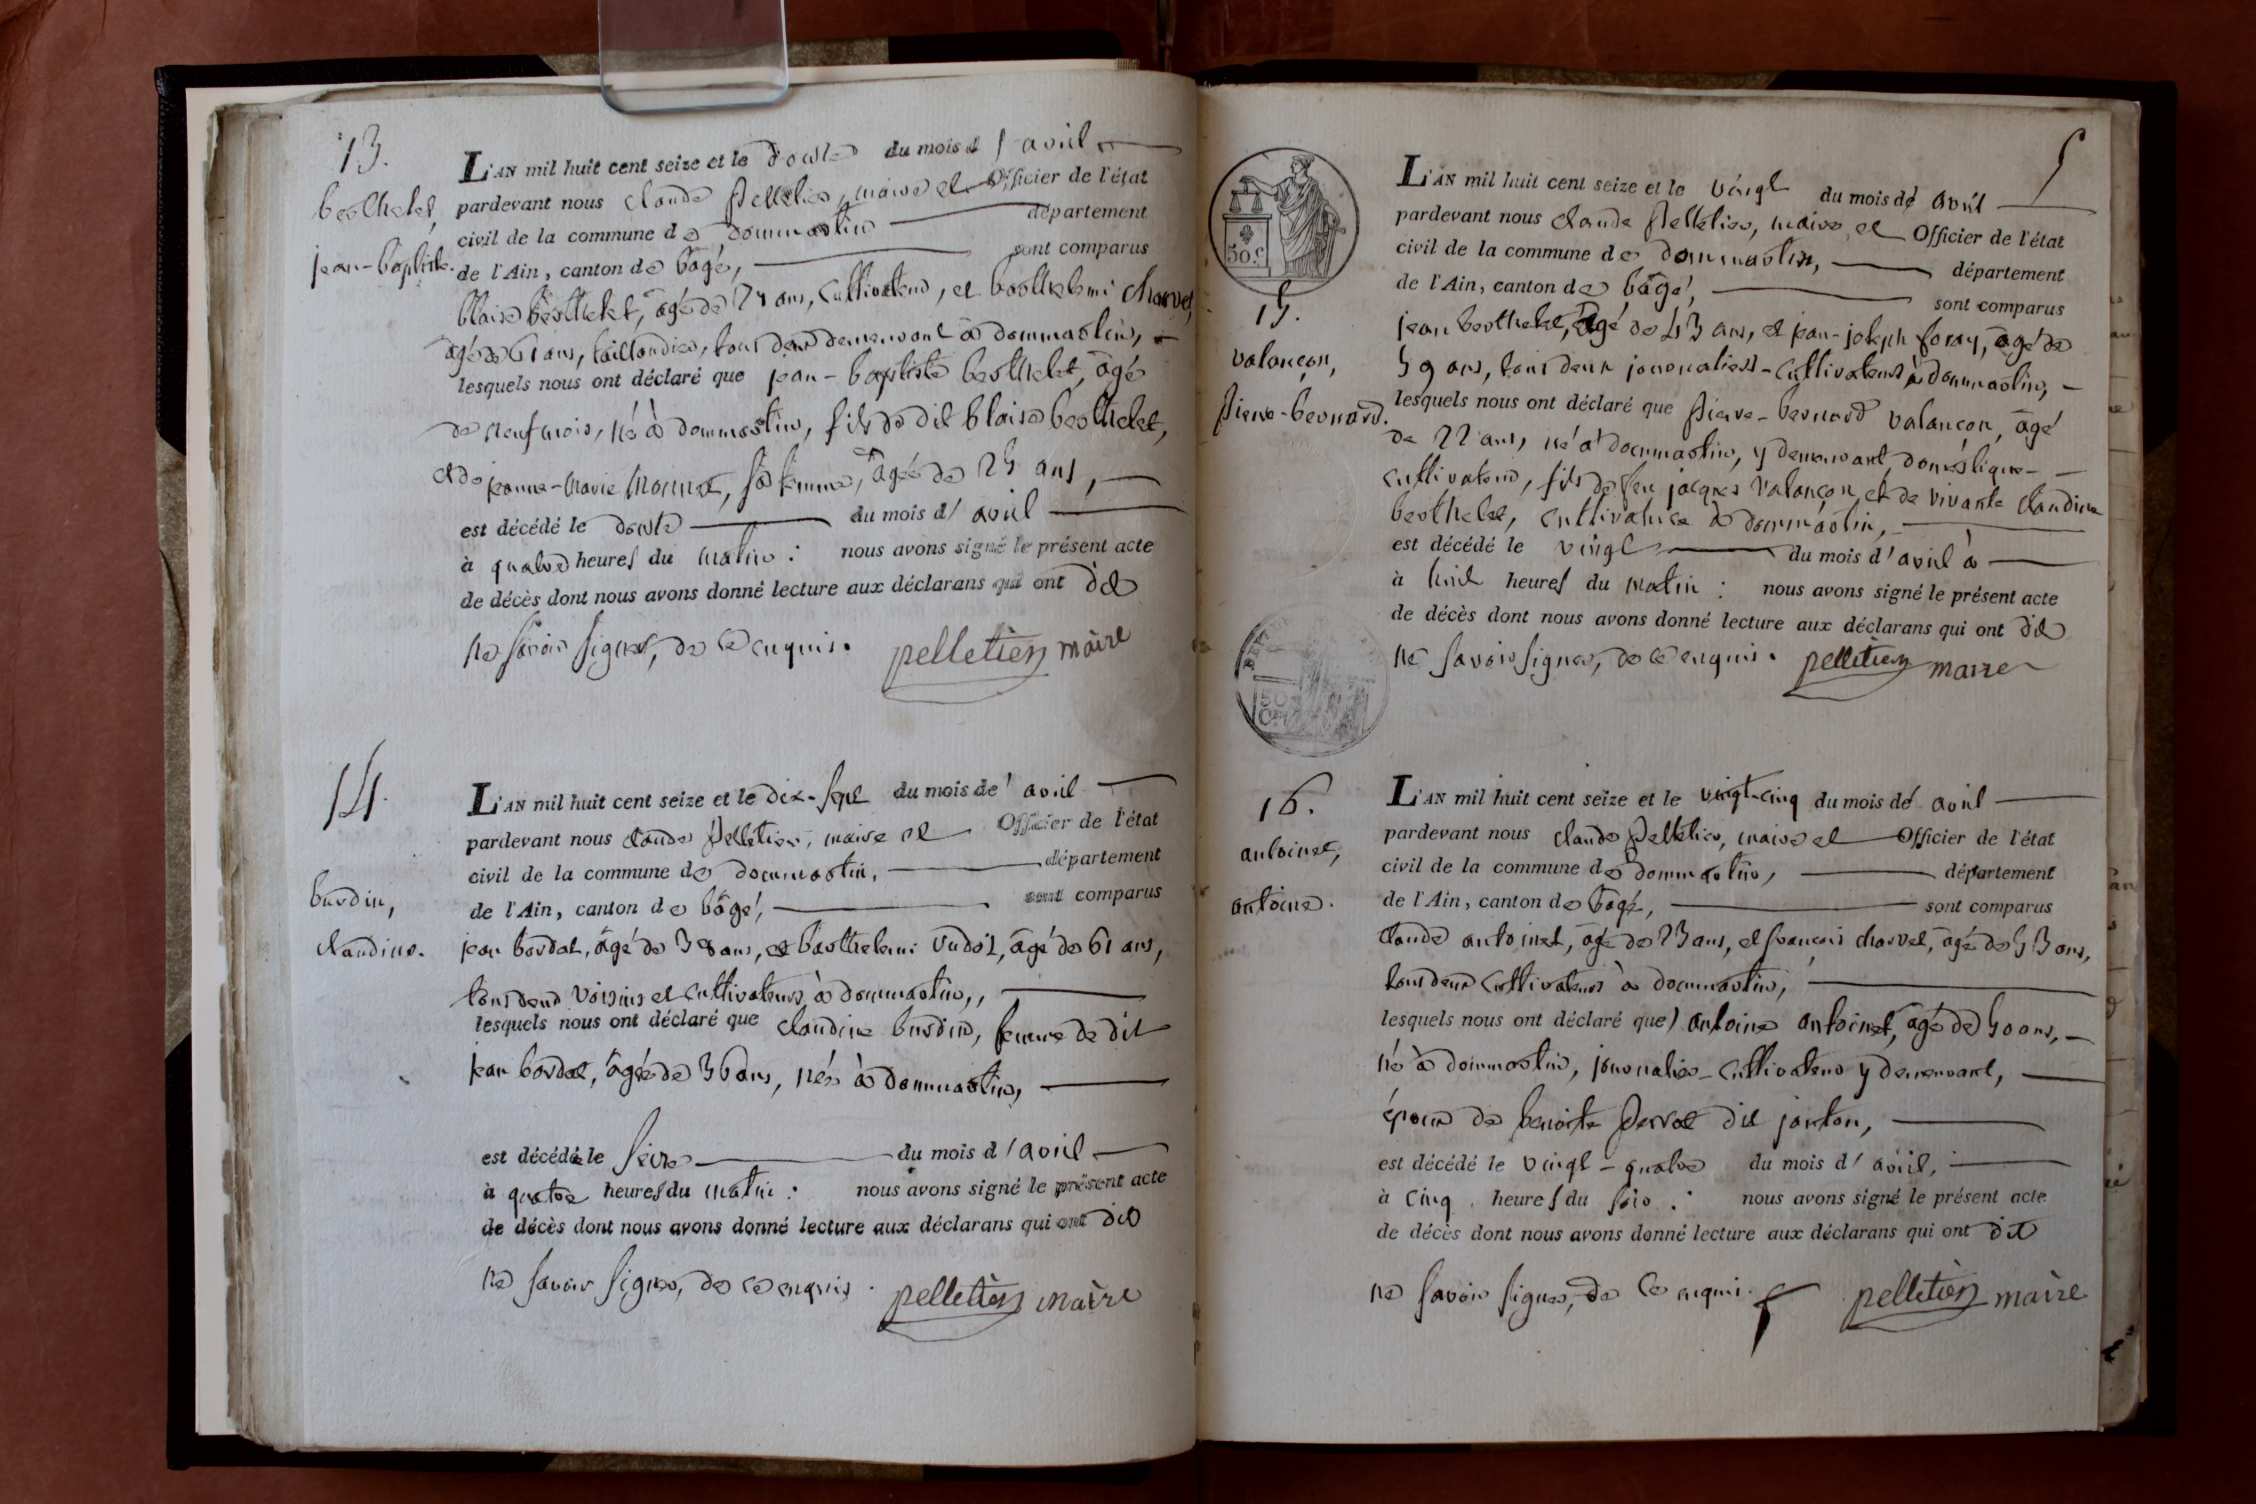 13.
berthelet,
jean-baptiste.
L'AN mil huit cent seize et le douze du mois d' avril
pardevant nous claude pelletier, maire et Officier de l'état
civil de la commune de dommartin département
de l'Ain, canton de bâgé, sont comparus
blaise berthelet, âgé de ans, cultivateur, et barthelemi charvet,
âgé de 61 ans, taillandier, tous deux demeurant à dommartin,
lesquels nous ont déclaré que jean-baptiste berthelet, âgé
de neuf mois, né à dommartin, fils de dit blaise berthelet,
et de jeanne-marie sa femme, âgée de 25 ans,
est décédé le douze du mois d' avril
à quatre heures du matin : nous avons signé le présent acte
de décès dont nous avons donné lecture aux déclarans qui ont dit
ne savoir signer, de ce enquis. pelletier maire
14.
burdin,
claudine.
L'AN mil huit cent seize et le dix-sept du mois de avril
pardevant nous claude pelletier, maire et Officier de l'état
civil de la commune de dommartin, département
de l'Ain, canton de bâgé, sont comparus
jean bordat, âgé de 38 ans, et barthelemi âgé de 61 ans,
tous deux voisins et cultivateurs à dommartin,,
lesquels nous ont déclaré que claudine burdin, femme de dit
jean bordat, âgée de 36 ans, née à dommartin,
est décédée le seize du mois d' avril
à quatre heures du matin : nous avons signé le présent acte
de décès dont nous avons donné lecture aux déclarans qui ont dit
ne savoir signer, de ce enquis. pelletier maire
5
50.c
15.
valançon,
pierre-bernard.
L'AN mil huit cent seize et le vingt du mois de avril
pardevant nous claude pelletier, maire et Officier de l'état
civil de la commune de dommartin, département
de l'Ain, canton de bâgé, sont comparus
jean berthelet, âgé de 43 ans, et jean-joseph foray, âgé de
59 ans, tous deux journaliers-cultivateurs à dommartin,
lesquels nous ont déclaré que pierre-bernard valançon, âgé
de 22 ans, né à dommartin, y demeurant, domestique-
cultivateur, fils de feu jacques valançon et de vivante claudine
berthelet, cultivatrice à dommartin,
est décédé le vingt du mois d' avril à
à huit heures du matin : nous avons signé le présent acte
de décès dont nous avons donné lecture aux déclarans qui ont dit
ne savoir signer, de ce enquis. pelletier maire
16.
antoinet,
antoine.
L'AN mil huit cent seize et le vingt-cinq du mois de avril
pardevant nous claude pelletier, maire et Officier de l'état
civil de la commune de dommartin, département
de l'Ain, canton de bâgé, sont comparus
claude antoinet, âgé de 23 ans, et françois charvet, âgé de 53 ans,
tous deux cultivateurs à dommartin,
lesquels nous ont déclaré que antoine antoinet, âgé de 50 ans,
né à dommartin, journalier-cultivateur y demeurant,
époux de benoite dit janton,
est décédé le vingt-quatre du mois d' avril,
à cinq heures du soir : nous avons signé le présent acte
de décès dont nous avons donné lecture aux déclarans qui ont dit
ne savoir signer, de ce enquis. pelletier maire